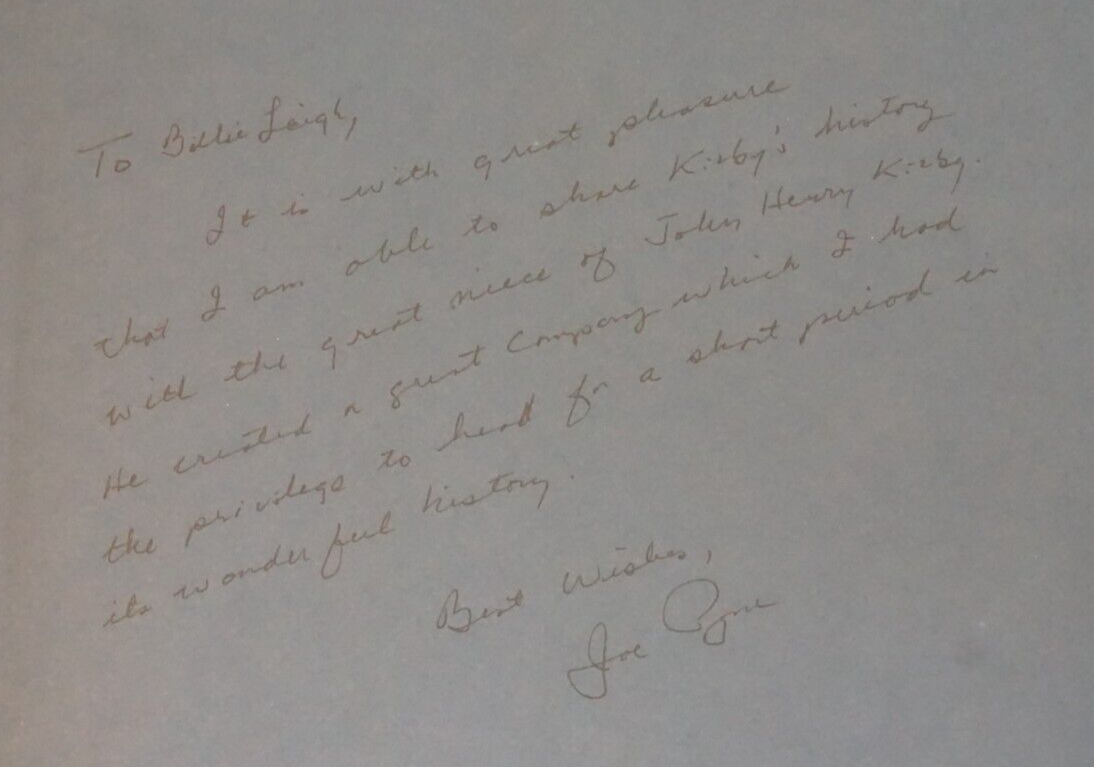 To Billie Leigh,
It is with great pleasure
that I am able to share Kirby's history
with the great niece of John Henry Kirby.
He created a great Company which I had
the privilege to head for a short period in
its wonderful history.
Best Wishes,
Joe Pyne